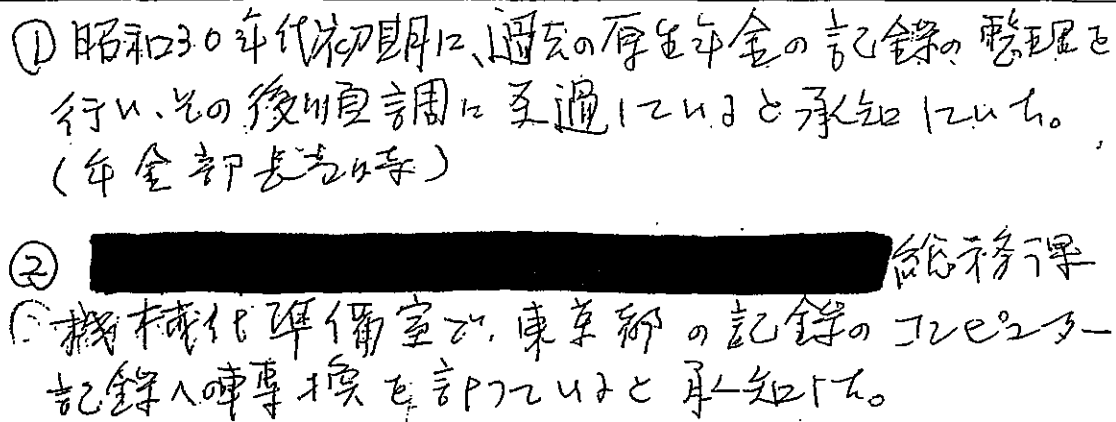 ①昭和30年代初期に、過去の厚生年金の記録の整理を
行い、その後順調に経過していると承知していた。
(年金部長当時)
② 総務課
機械化準備室で、東京都の記録のコンピューター
記録への転換を計っていると承知した。